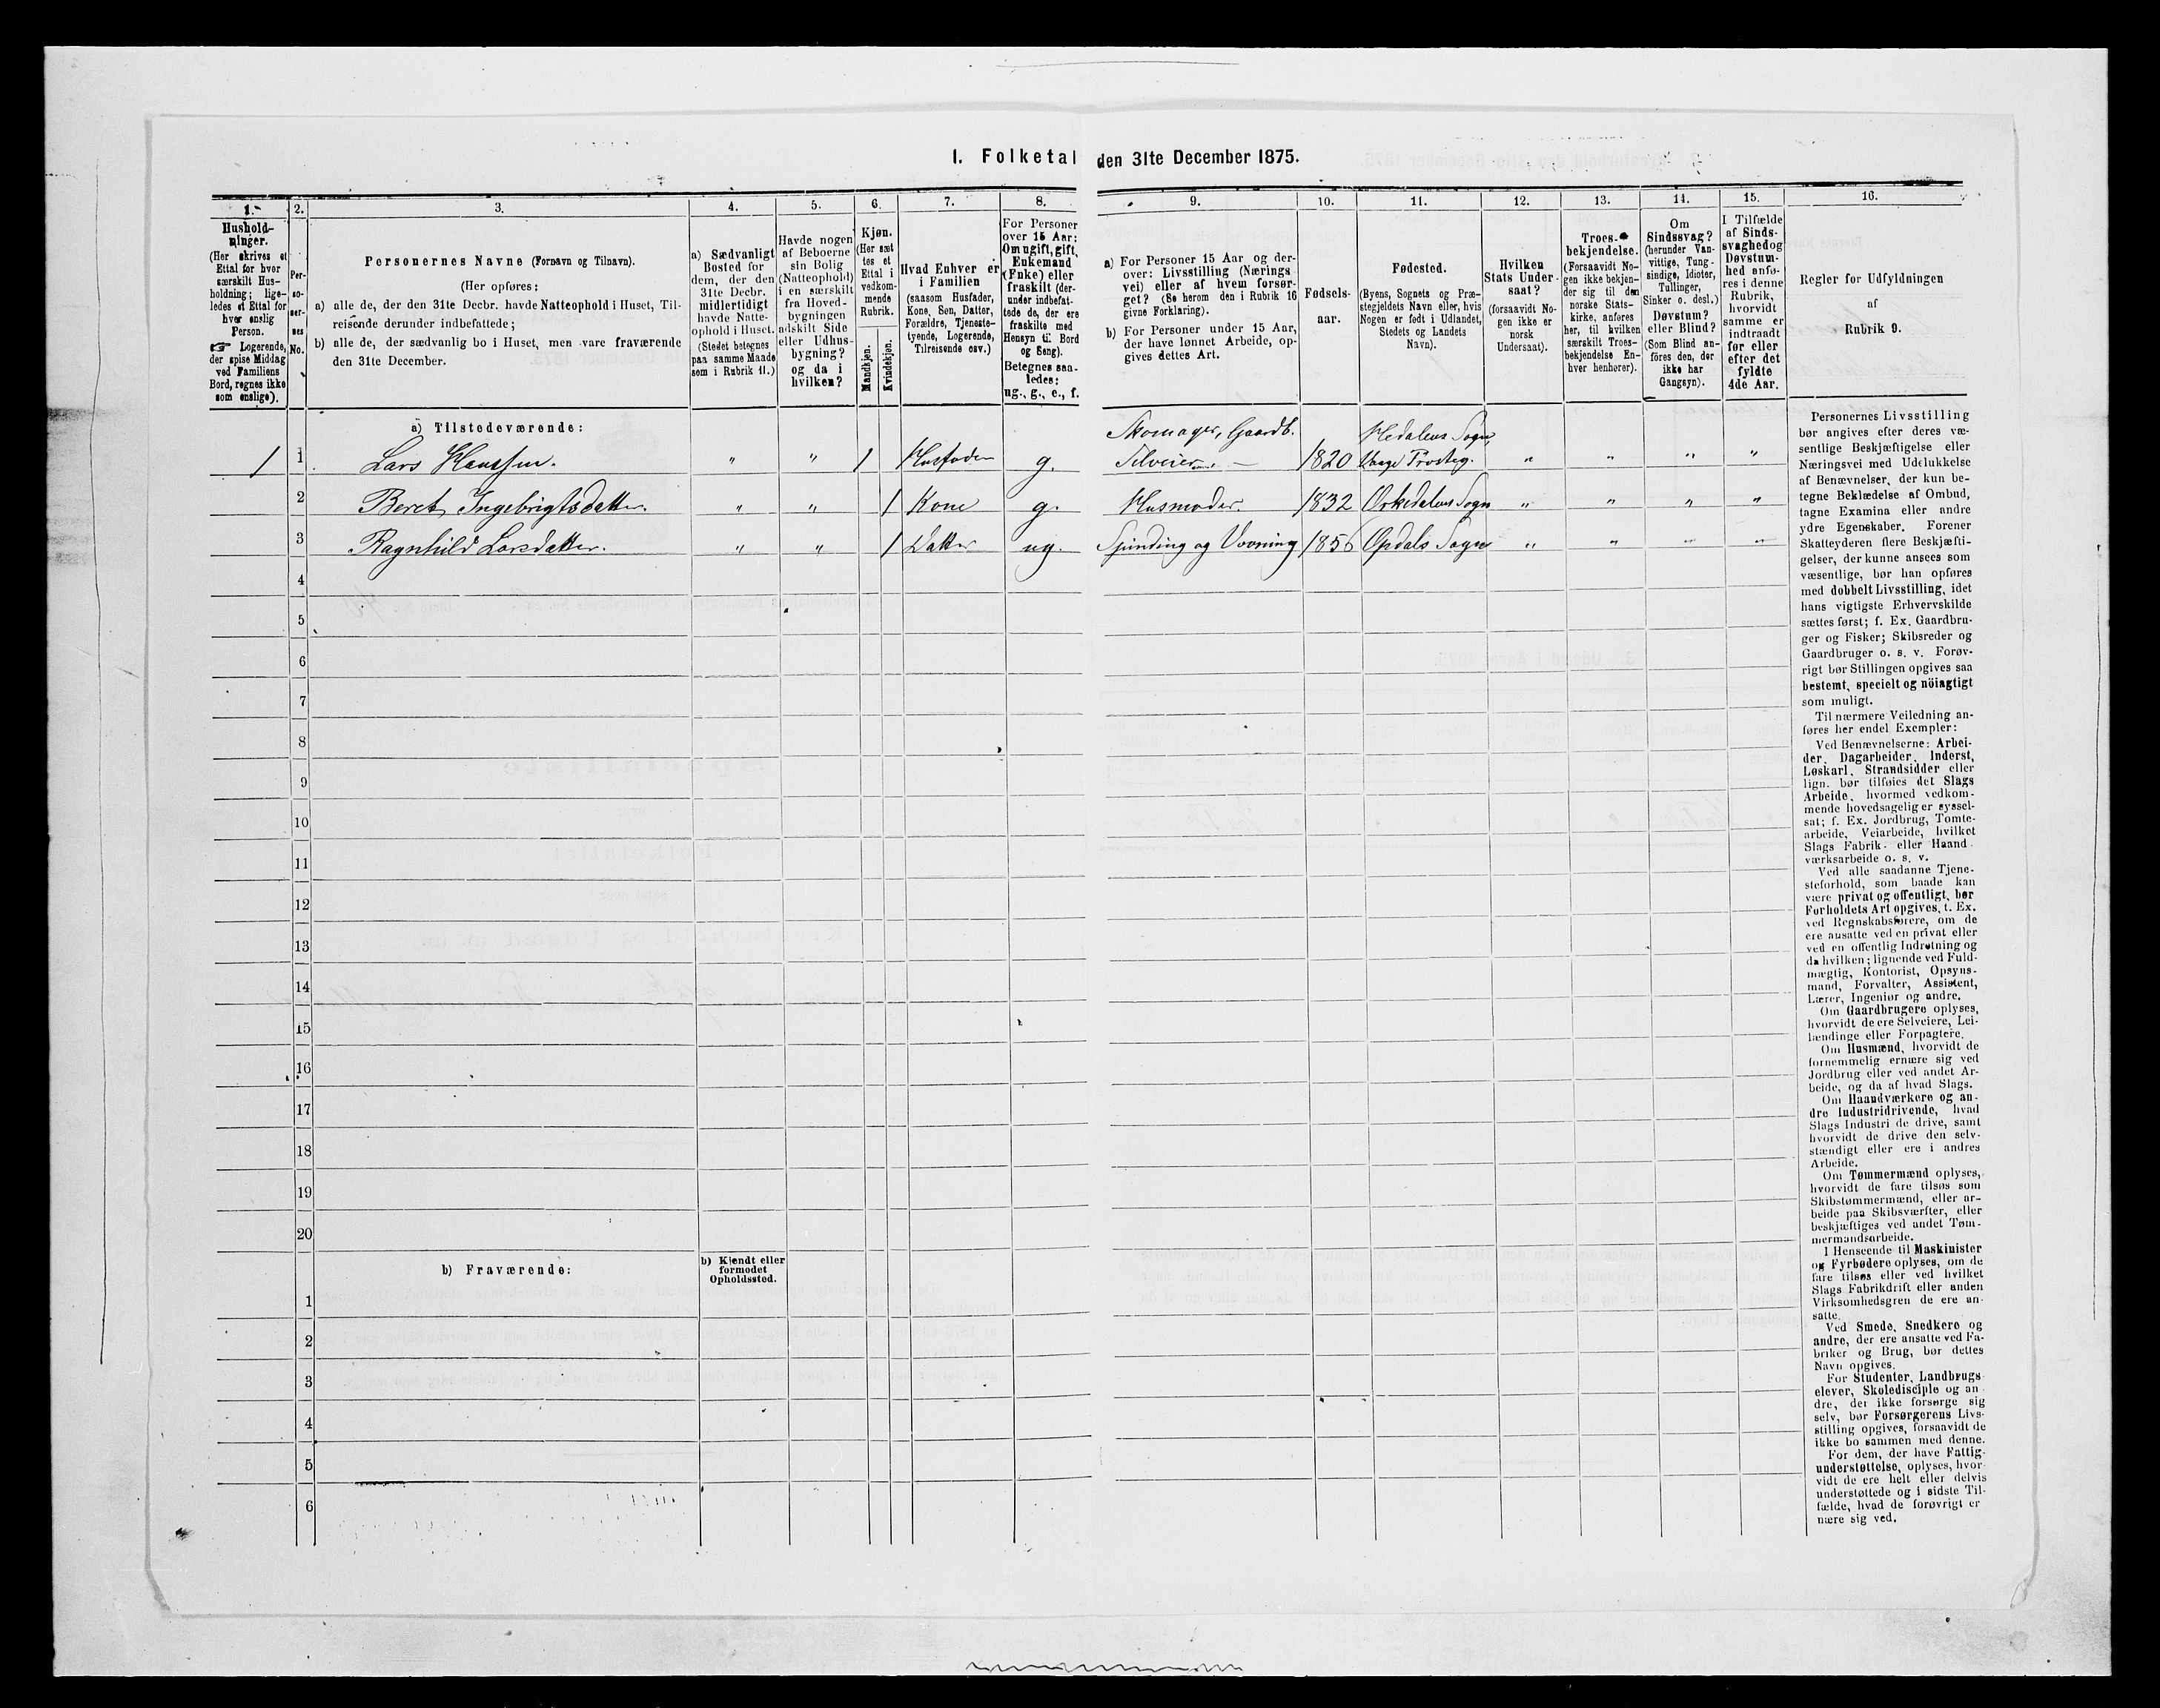 1. Folketal den 31te December 1875.
1. 2. 3. 4. 5. 6. 7. 8. 9. 10. 11. 12. 13. 14. 15. 16.
Hushold-
ninger.
(Her skrives et
Ettal for hver
særskilt Hus-
holdning; lige-
ledes et Ettal for
hver enslig
Person.
☞ Logerende,
der spise Middag
ved Familiens
Bord, regnes ikke
som enslige).
Per-
so-
ner-
nes
No.
Personernes Navne (Fornavn og Tilnavn).
(Her opføres:
a) alle de, der den 31te Decbr. havde Natteophold i Huset, Til-
reisende derunder indbefattede;
b) alle de, der sædvanlig bo i Huset, men vare fraværende
den 31te December.
a) Sædvanligt
Bosted for
dem, der den
31te Decbr.
midlertidigt
havde Natte-
ophold i Huset.
(Stedet betegnes
paa samme Maade
som i Rubrik 11.)
Havde nogen
af Beboerne
sin Bolig
(Natteophold)
i en særskilt
fra Hoved-
bygningen
adskilt Side
eller Udhus-
bygning?
og da i
hvilken?
Kjøn.
(Her sæt-
tes et
Ettal i
vedkom-
mende
Rubrik.
Mandkjøn.
Kvindekjøn.
Hvad Enhver er
i Familien
(saasom Husfader,
Kone, Søn, Datter,
Forældre, Tjeneste-
tyende, Logerende,
Tilreisende osv.)
For Personer
over 15 Aar:
Om ugift, gift,
Enkemand
(Enke) eller
fraskilt (der-
under indbefat-
tede de, der ere
fraskilte med
Hensyn til Bord
og Seng).
Betegnes saa-
ledes:
ug., g., e., f.
a) For Personer 15 Aar og der-
over: Livsstilling (Nærings
vei) eller af hvem forsør-
get? (Se herom den i Rubrik 16
givne Forklaring).
b) For Personer under 15 Aar,
der have lønnet Arbeide, op-
gives dettes Art.
Fødsels-
aar.
Fødested.
(Byens, Sognets og Præ-
stegjeldets Navn eller, hvis
Nogen er født i Udlandet,
Stedets og Landets
Navn).
Hvilken
Stats Under-
saat?
(forsaavidt No-
gen ikke er
norsk
Undersaat).
Troes-
bekjendelse.
(Forsaavidt No-
gen ikke bekjen-
der sig til den
norske Stats-
kirke, anføres
her, til hvilken
særskilt Troes-
bekjendelse En-
hver henhører).
Om
Sindssvag?
(herunder Van-
vittige, Tung-
sindige, Idioter,
Tullinger,
Sinker o. desl.)
Døvstum?
eller Blind?
(Som Blind an-
föres den, der
ikke har
Gangsyn).
I Tilfælde
af Sinds-
svaghed og
Døvstum-
hed anfø-
res i denne
Rubrik,
hvorvidt
samme er
indtraadt
før eller
efter det
fyldte
4de Aar.
Regler for Udfyldningen
af
Rubrik 9.
a) Tilstedeværende:
1 1 Lars Hanssen. " " 1 Husfader g. Skomager, Gaardb. Selveier 1820 Hedalens Sogn, Vaage Prosteg. " " " "
2 Beret Ingebrigtsdatter. " " 1 Kone g. Husmoder 1832 Orkedalens Sogn " " " "
3 Ragnhild Larsdatter. " " 1 Datter ug. Spinding og Vævning 1856 Opdals Sogn " " " "
4
5
6
7
8
9
10
11
12
13
14
15
16
17
18
19
20
b) Fraværende:
b) Kjendt eller
formodet
Opholdssted.
1
2
3
4
5
6
Personernes Livsstilling
bør angives efter deres væ-
sentlige Beskjæftigelse eller
Næringsvei med Udelukkelse
af Benævnelser, der kun be-
tegne Beklædelse af Ombud,
tagne Examina eller andre
ydre Egenskaber. Forener
Skatteyderen flere Beskjæfti-
gelser, der kunne ansees som
væsentlige, bør han opføres
med dobbelt Livsstilling, idet
hans vigtigste Erhvervskilde
sættes først; f. Ex. Gaardbru-
ger og Fisker; Skibsreder og
Gaardbruger o. s. v. Forøv-
rigt bør Stillingen opgives saa
bestemt, specielt og nöiagtigt
som muligt.
Til nærmere Veiledning an-
føres her endel Exempler:
Ved Benævnelserne: Arbei-
der, Dagarbeider, Inderst,
Løskarl, Strandsidder eller
lign. bør tilføies det Slags
Arbeide, hvormed vedkom-
mende hovedsagelig er syssel-
sat; f. Ex. Jordbrug, Tomte-
arbeide, Veiarbeide, hvilket
Slags Fabrik- eller Haand-
værksarbeide o. s. v.
Ved alle saadanne Tjene-
steforhold, som baade kan
være privat og offentligt, bør
Forholdets Art opgives, t. Ex.
ved Regnskabsførere, om de
ere ansatte ved en privat eller
ved en offentlig Indretning og
da hvilken; lignende ved Fuld-
mægtig, Kontorist, Opsyns-
mand, Forvalter, Assistent,
Lærer, Ingeniør og andre.
Om Gaardbrugere oplyses,
hvorvidt de ere Selveiere, Lei-
lændinge eller Forpagtere.
Om Husmænd, hvorvidt de
fornemmelig ernære sig ved
Jordbrug eller ved andet Ar-
beide, og da af hvad Slags.
Om Haandværkere og an-
dre Industridrivende, hvad
Slags Industri de drive, samt
hvorvidt de drive den selv-
stændigt eller ere i andres
Arbeide.
Om Tømmermænd oplyses,
hvorvidt de fare tilsøs som
Skibstømmermænd, eller ar-
beide paa Skibsværfter, eller
beskjæftiges ved andet Tøm-
mermandsarbeide.
I Henseende til Maskinister
og Fyrbødere oplyses, om de
fare tilsøs eller ved hvilket
Slags Fabrikdrift eller anden
Virksomhedsgren de ere an-
satte.
Ved Smede, Snedkere og
andre, der ere ansatte ved Fa-
briker og Brug, bør dettes
Navn opgives.
For Studenter, Landbrugs-
elever, Skoledisciple og an-
dre, der ikke forsørge sig
selv, bør Forsørgerens Livs-
stilling opgives, forsaavidt de
ikke bo sammen med denne.
For dem, der have Fattig-
understøttelse, oplyses, hvor-
vidt de ere helt eller delvis
understøttede og i sidste Til-
fælde, hvad de forøvrigt er
nære sig ved.